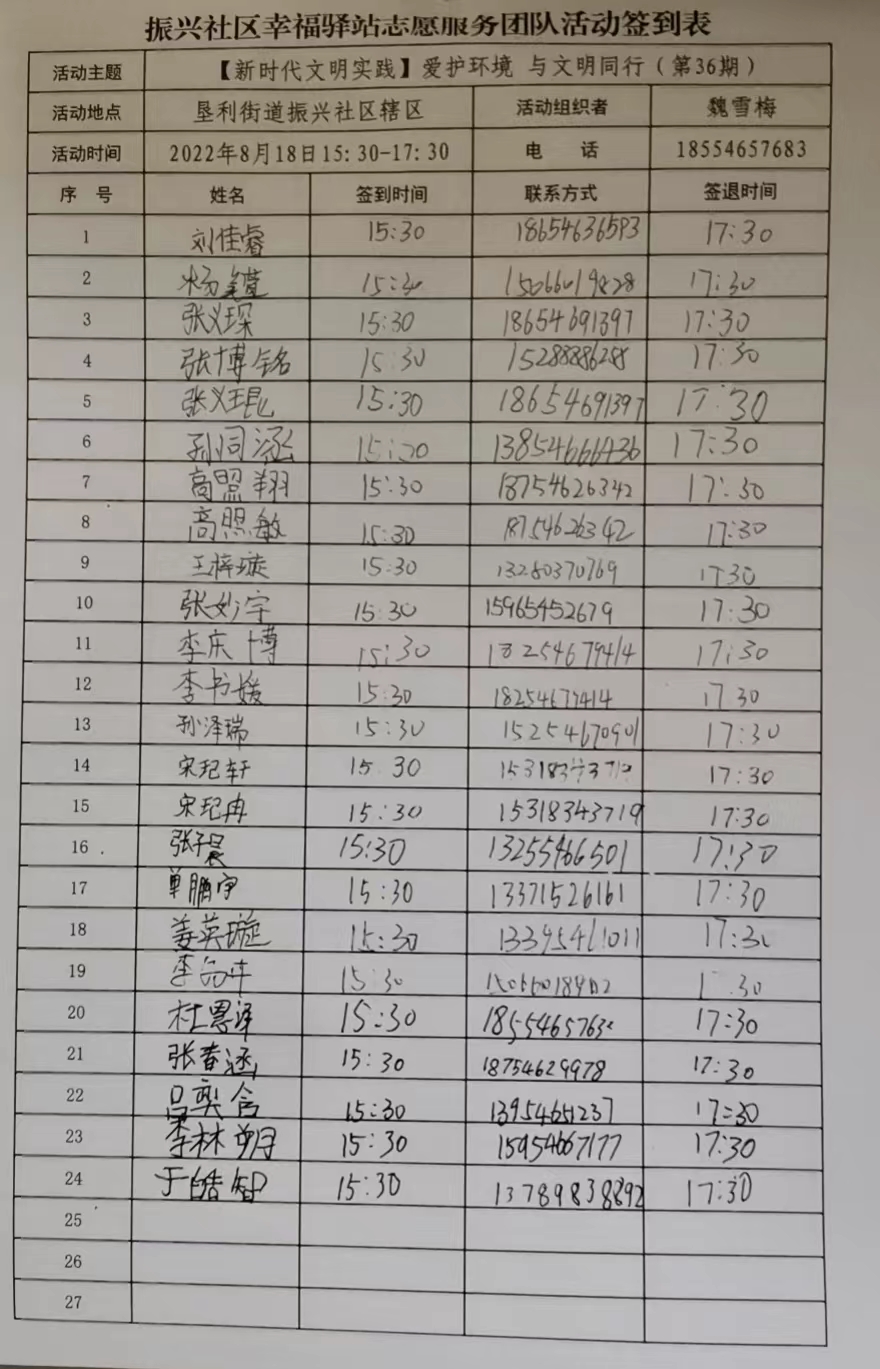 振兴社区幸福驿站志愿服务团队活动签到表
活动主题 【新时代文明实践】爱护环境 与文明同行（第36期）
活动地点 垦利街道振兴社区辖区 活动组织者 魏雪梅
活动时间 2022年8月18日15:30-17:30 电 话 18554657683
序 号 姓名 签到时间 联系方式 签退时间
1 刘佳睿 15:30 18654636593 17:30
2 15:30 17:30
3 张义琛 15:30 18654691397 17:30
4 张博铭 15:30 15288886288 17:30
5 张义琨 15:30 18654691397 17:30
6 孙同涵 17:30
7 高照翔 15:30 18754626342 17:30
8 高照敏 15:30 18754626342 17:30
9 王梓璇 15:30 13280370769 17:30
10 张妙宇 15:30 15965452679 17:30
11 李庆博 15:30 18254679414 17:30
12 李书媛 15:30 18254679414 17:30
13 孙泽瑞 15:30 15254670901 17:30
14 宋玘轩 15:30 17:30
15 宋玘冉 15:30 15318343719 17:30
16 张子晨 15:30 13255466501 17:30
17 单鹏宇 15:30 13371526161 17:30
18 姜英璇 15:30 13395461011 17:30
19 15:30
20 杜恩泽 15:30 17:30
21 张春涵 15:30 18754629978 17:30
22 吕奕含 15:30 13954651237 17:30
23 李林朔 15:30 15954667177 17:30
24 于皓智 15:30 13789838892 17:30
25
26
27